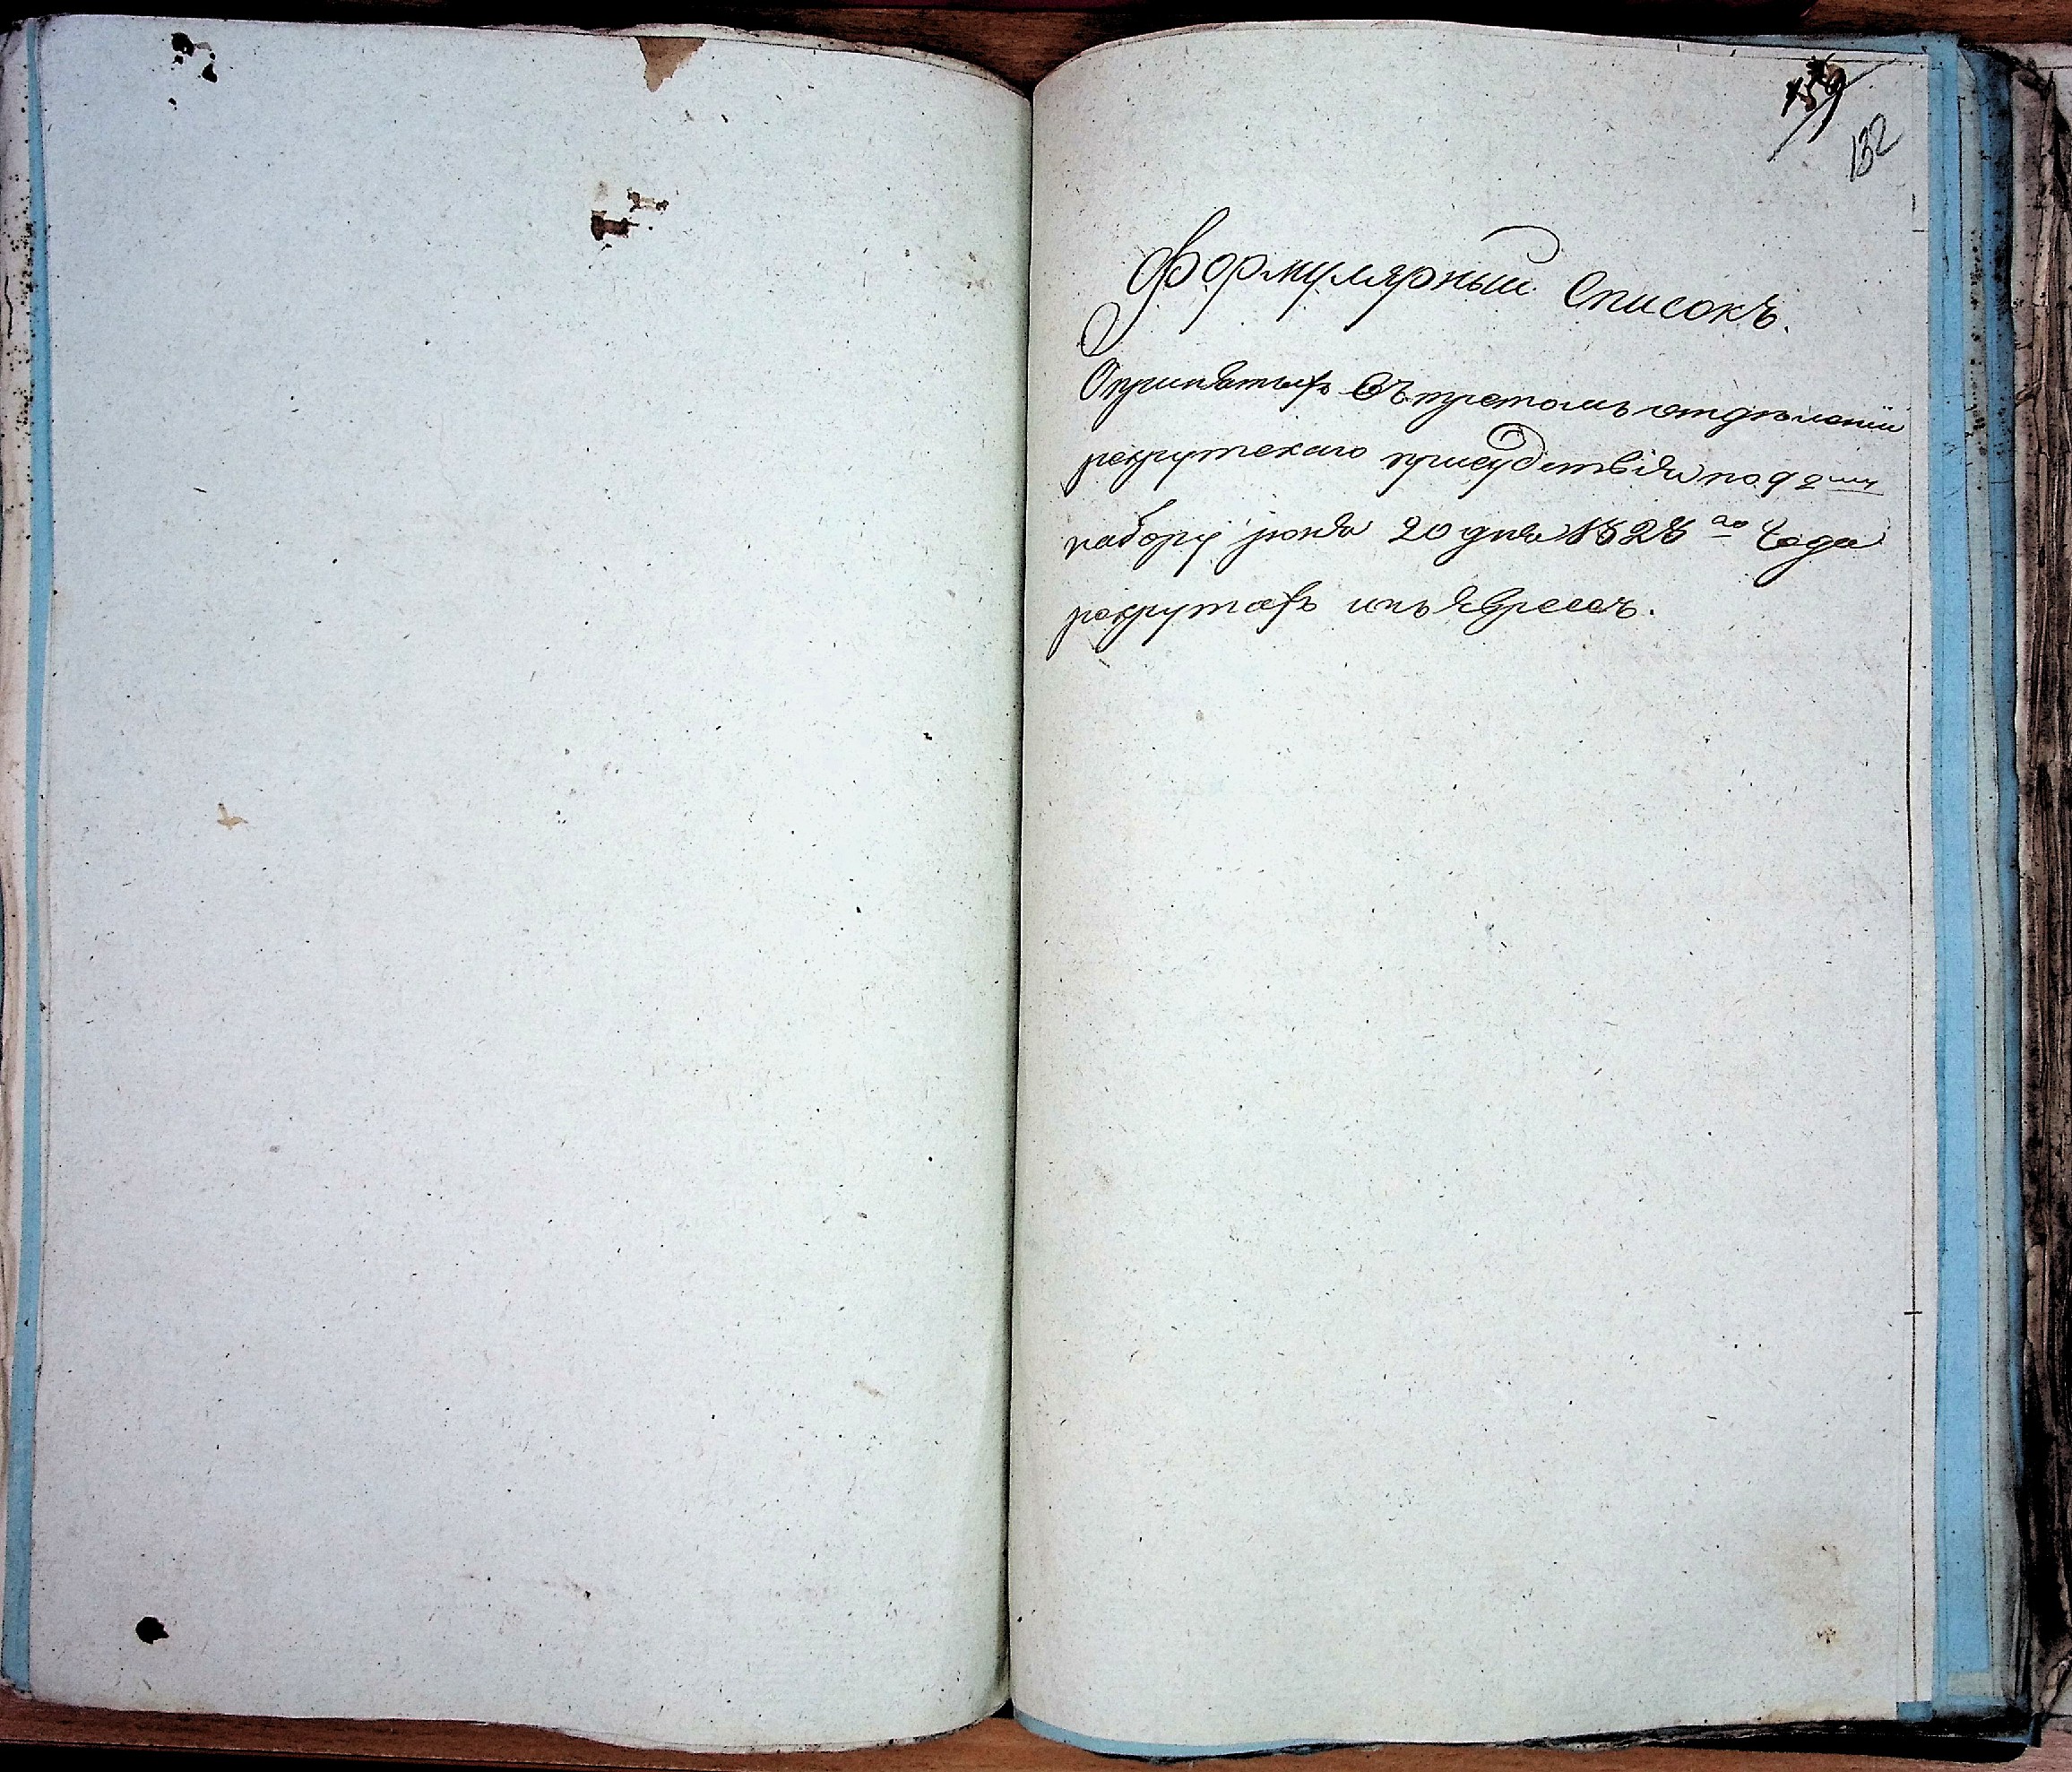 159
132
Формулярный Списокъ.
О принятыхъ Въ третомъ отделении
рекрутскаго присудствія по 92му
набору июня 20 дня 1828го Года
рекрутахъ изъ Евреевъ.